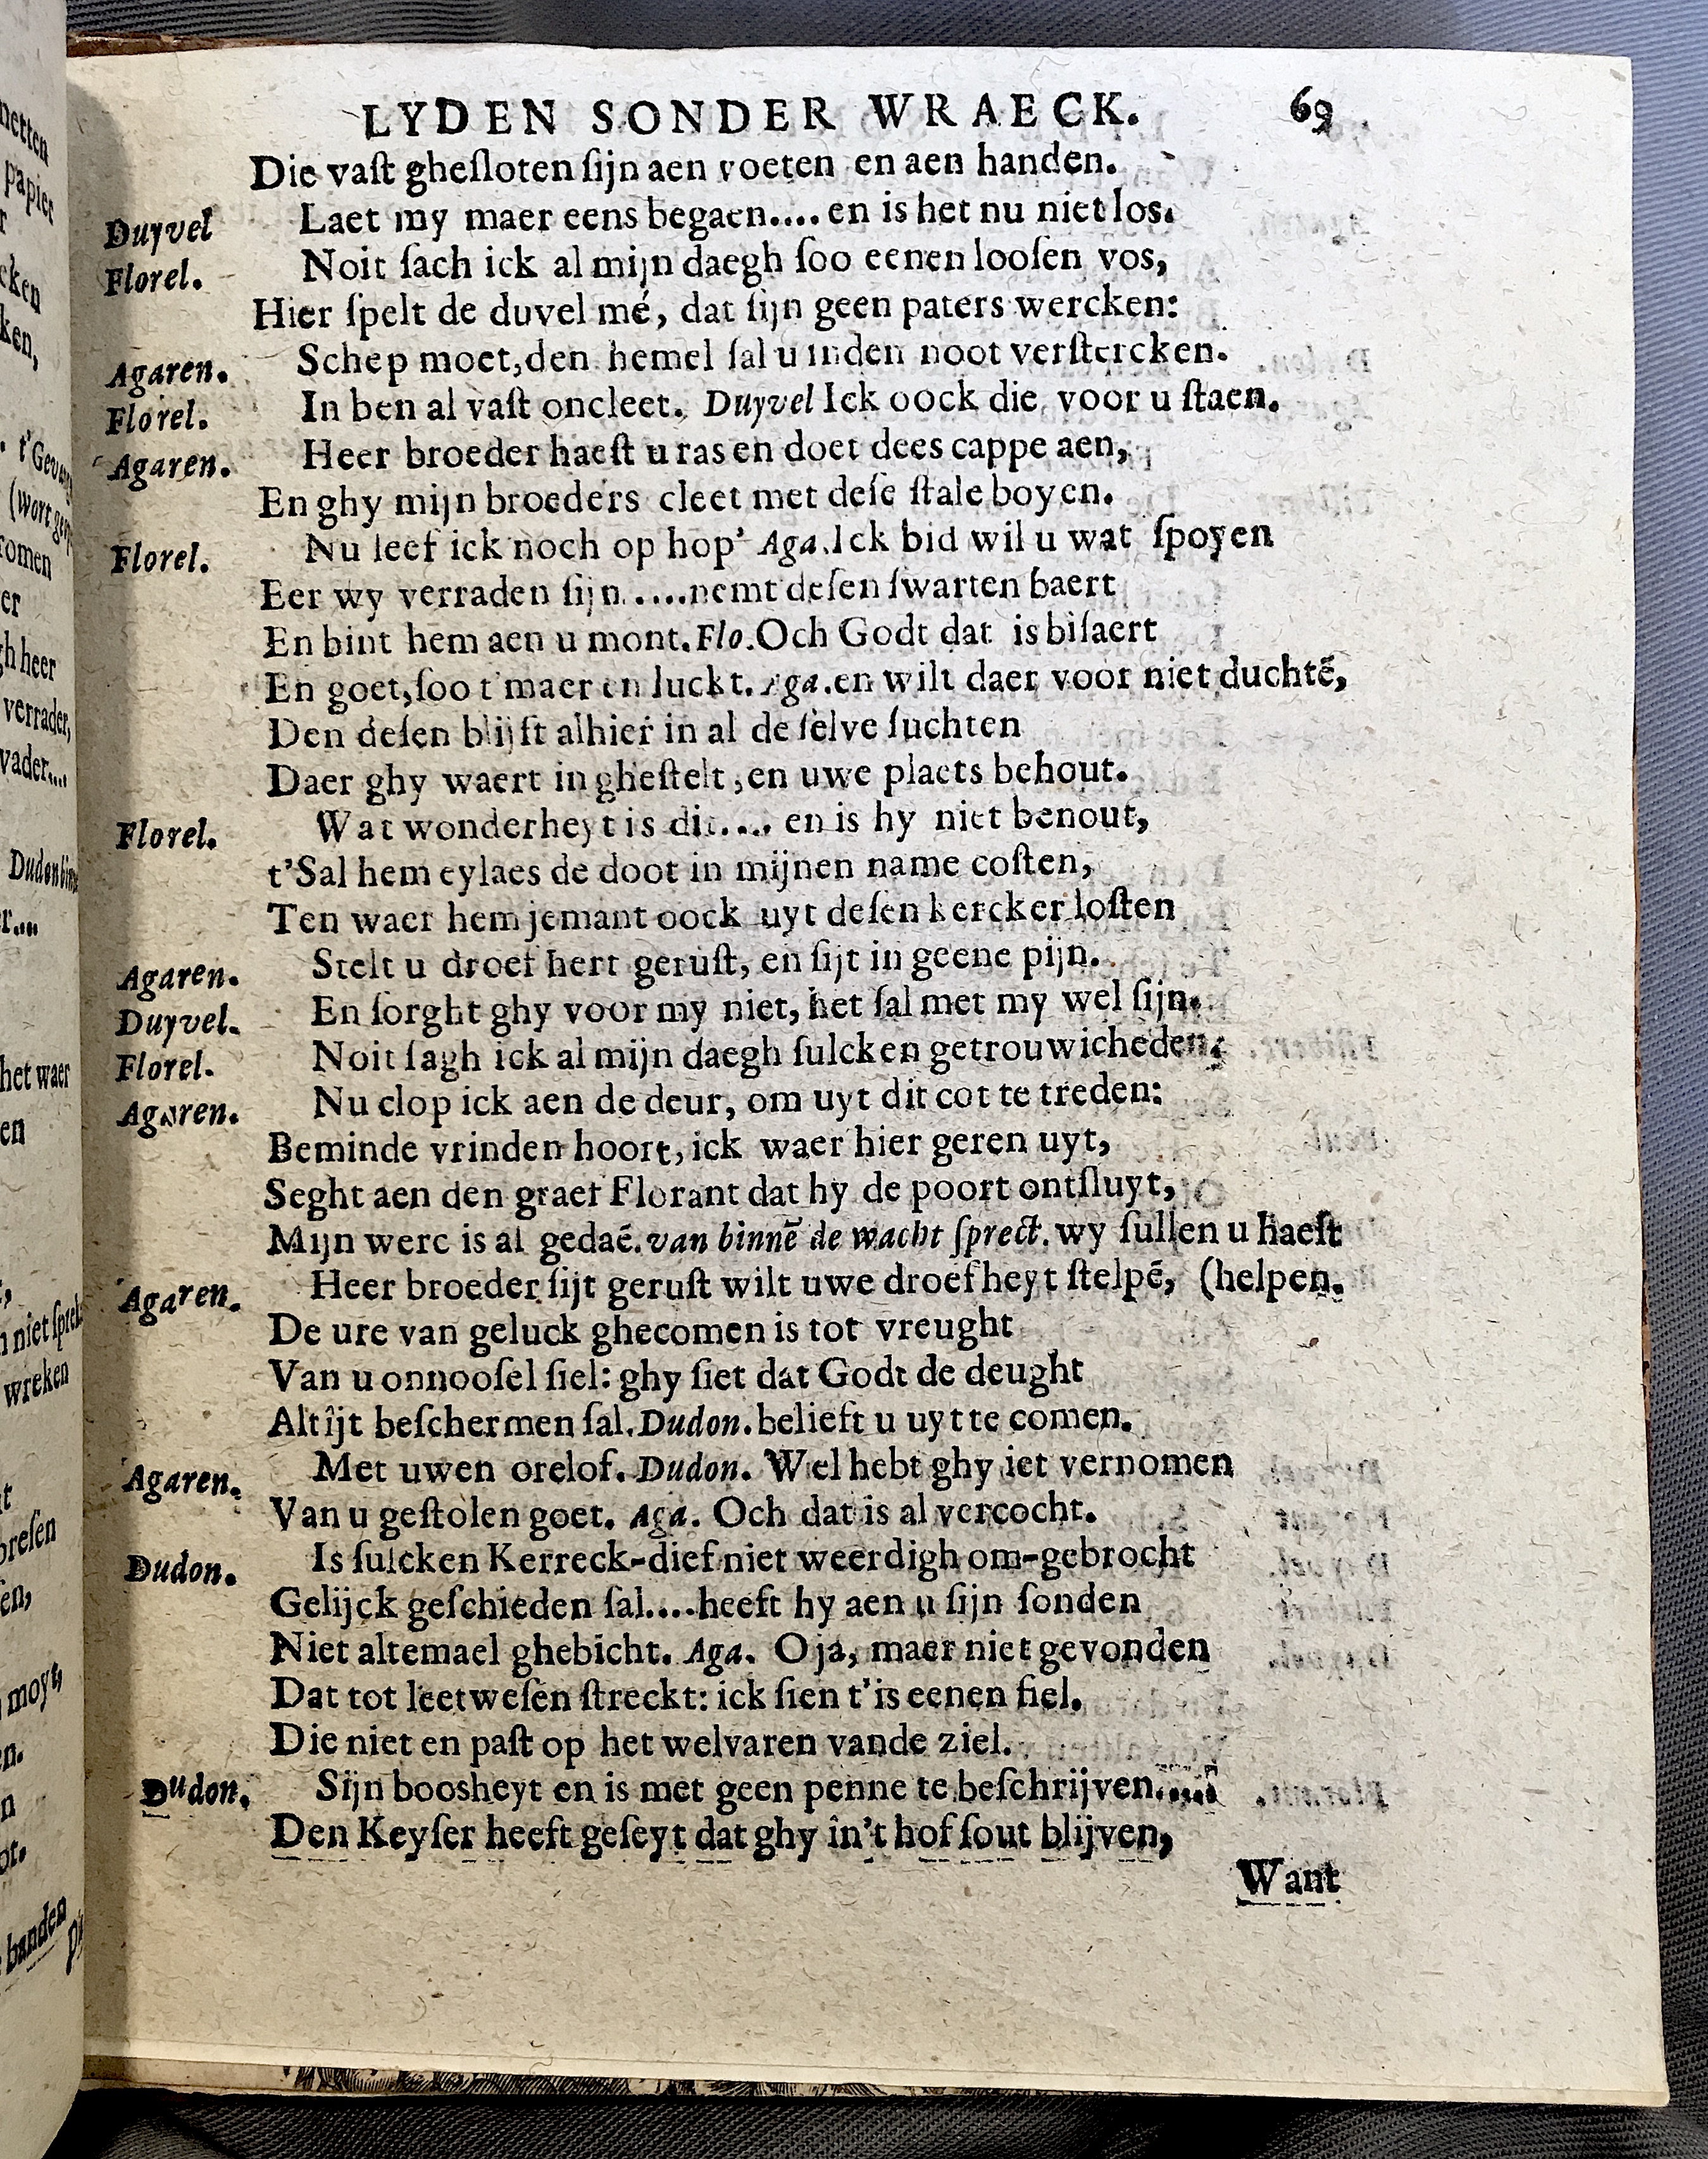 LYDEN SONDER WRAECK. 69
Die vaſt gheſloten ſijn aen voeten en aen handen.
Duyvel Laet my maer eens begaen.... en is het nu niet los.
Florel. Noit ſach ick al mijn daegh ſoo eenen looſen vos,
Hier ſpelt de duvel mé, dat ſijn geen paters wercken:
Agaren. Schep moet, den hemel ſal u inden noot verſtercken.
Florel. In ben al vaſt oncleet. Duyvel Ick oock die voor u ſtaen.
Agaren. Heer broeder haeſt u ras en doet dees cappe aen,
En ghy mijn broeders cleet met deſe ſtale boyen.
Florel. Nu leef ick noch op hop' Aga. Ick bid wil u wat ſpoyen
Eer wy verraden ſijn.....nemt deſen ſwarten baert
En bint hem aen u mont. Flo. Och Godt dat is biſaert
En goet, ſoo t'maer en luckt. Aga. en wilt daer voor niet duchtē,
Den deſen blijft alhier in al de ſelve ſuchten
Daer ghy waert in gheſtelt, en uwe plaets behout.
Florel. Wat wonderheyt is dit.... en is hy niet benout,
t'Sal hem eylaes de doot in mijnen name coſten,
Ten waer hem jemant oock uyt deſen kercker loſten
Agaren. Stelt u droef hert geruſt, en ſijt in geene pijn.
Duyvel. En ſorght ghy voor my niet, het ſal met my wel ſijn.
Florel. Noit ſagh ick al mijn daegh ſulcken getrouwicheden:
Agaren. Nu clop ick aen de deur, om uyt dit cot te treden:
Beminde vrinden hoort, ick waer hier geren uyt,
Seght aen den graef Florant dat hy de poort ontſluyt,
Mijn werc is al gedaē. van binnē de wacht ſprect. wy ſullen u haeſt
Agaren. Heer broeder ſijt geruſt wilt uwe droefheyt ſtelpē, (helpen.
De ure van geluck ghecomen is tot vreught
Van u onnooſel ſiel: ghy ſiet dat Godt de deught
Altîjt beſchermen ſal. Dudon. belieft u uyt te comen.
Agaren. Met uwen orelof. Dudon. Wel hebt ghy iet vernomen
Van u geſtolen goet. Aga. Och dat is al vercocht.
Dudon. Is ſulcken Kerreck-dief niet weerdigh om-gebrocht
Gelijck geſchieden ſal....heeft hy aen u ſijn ſonden
Niet altemael ghebicht. Aga. O ja, maer niet gevonden
Dat tot leetweſen ſtreckt: ick ſien t'is eenen fiel.
Die niet en paſt op het welvaren vande ziel.
Dudon. Sijn boosheyt en is met geen penne te beſchrijven.....
Den Keyſer heeft geſeyt dat ghy în't hof ſout blijven,
Want